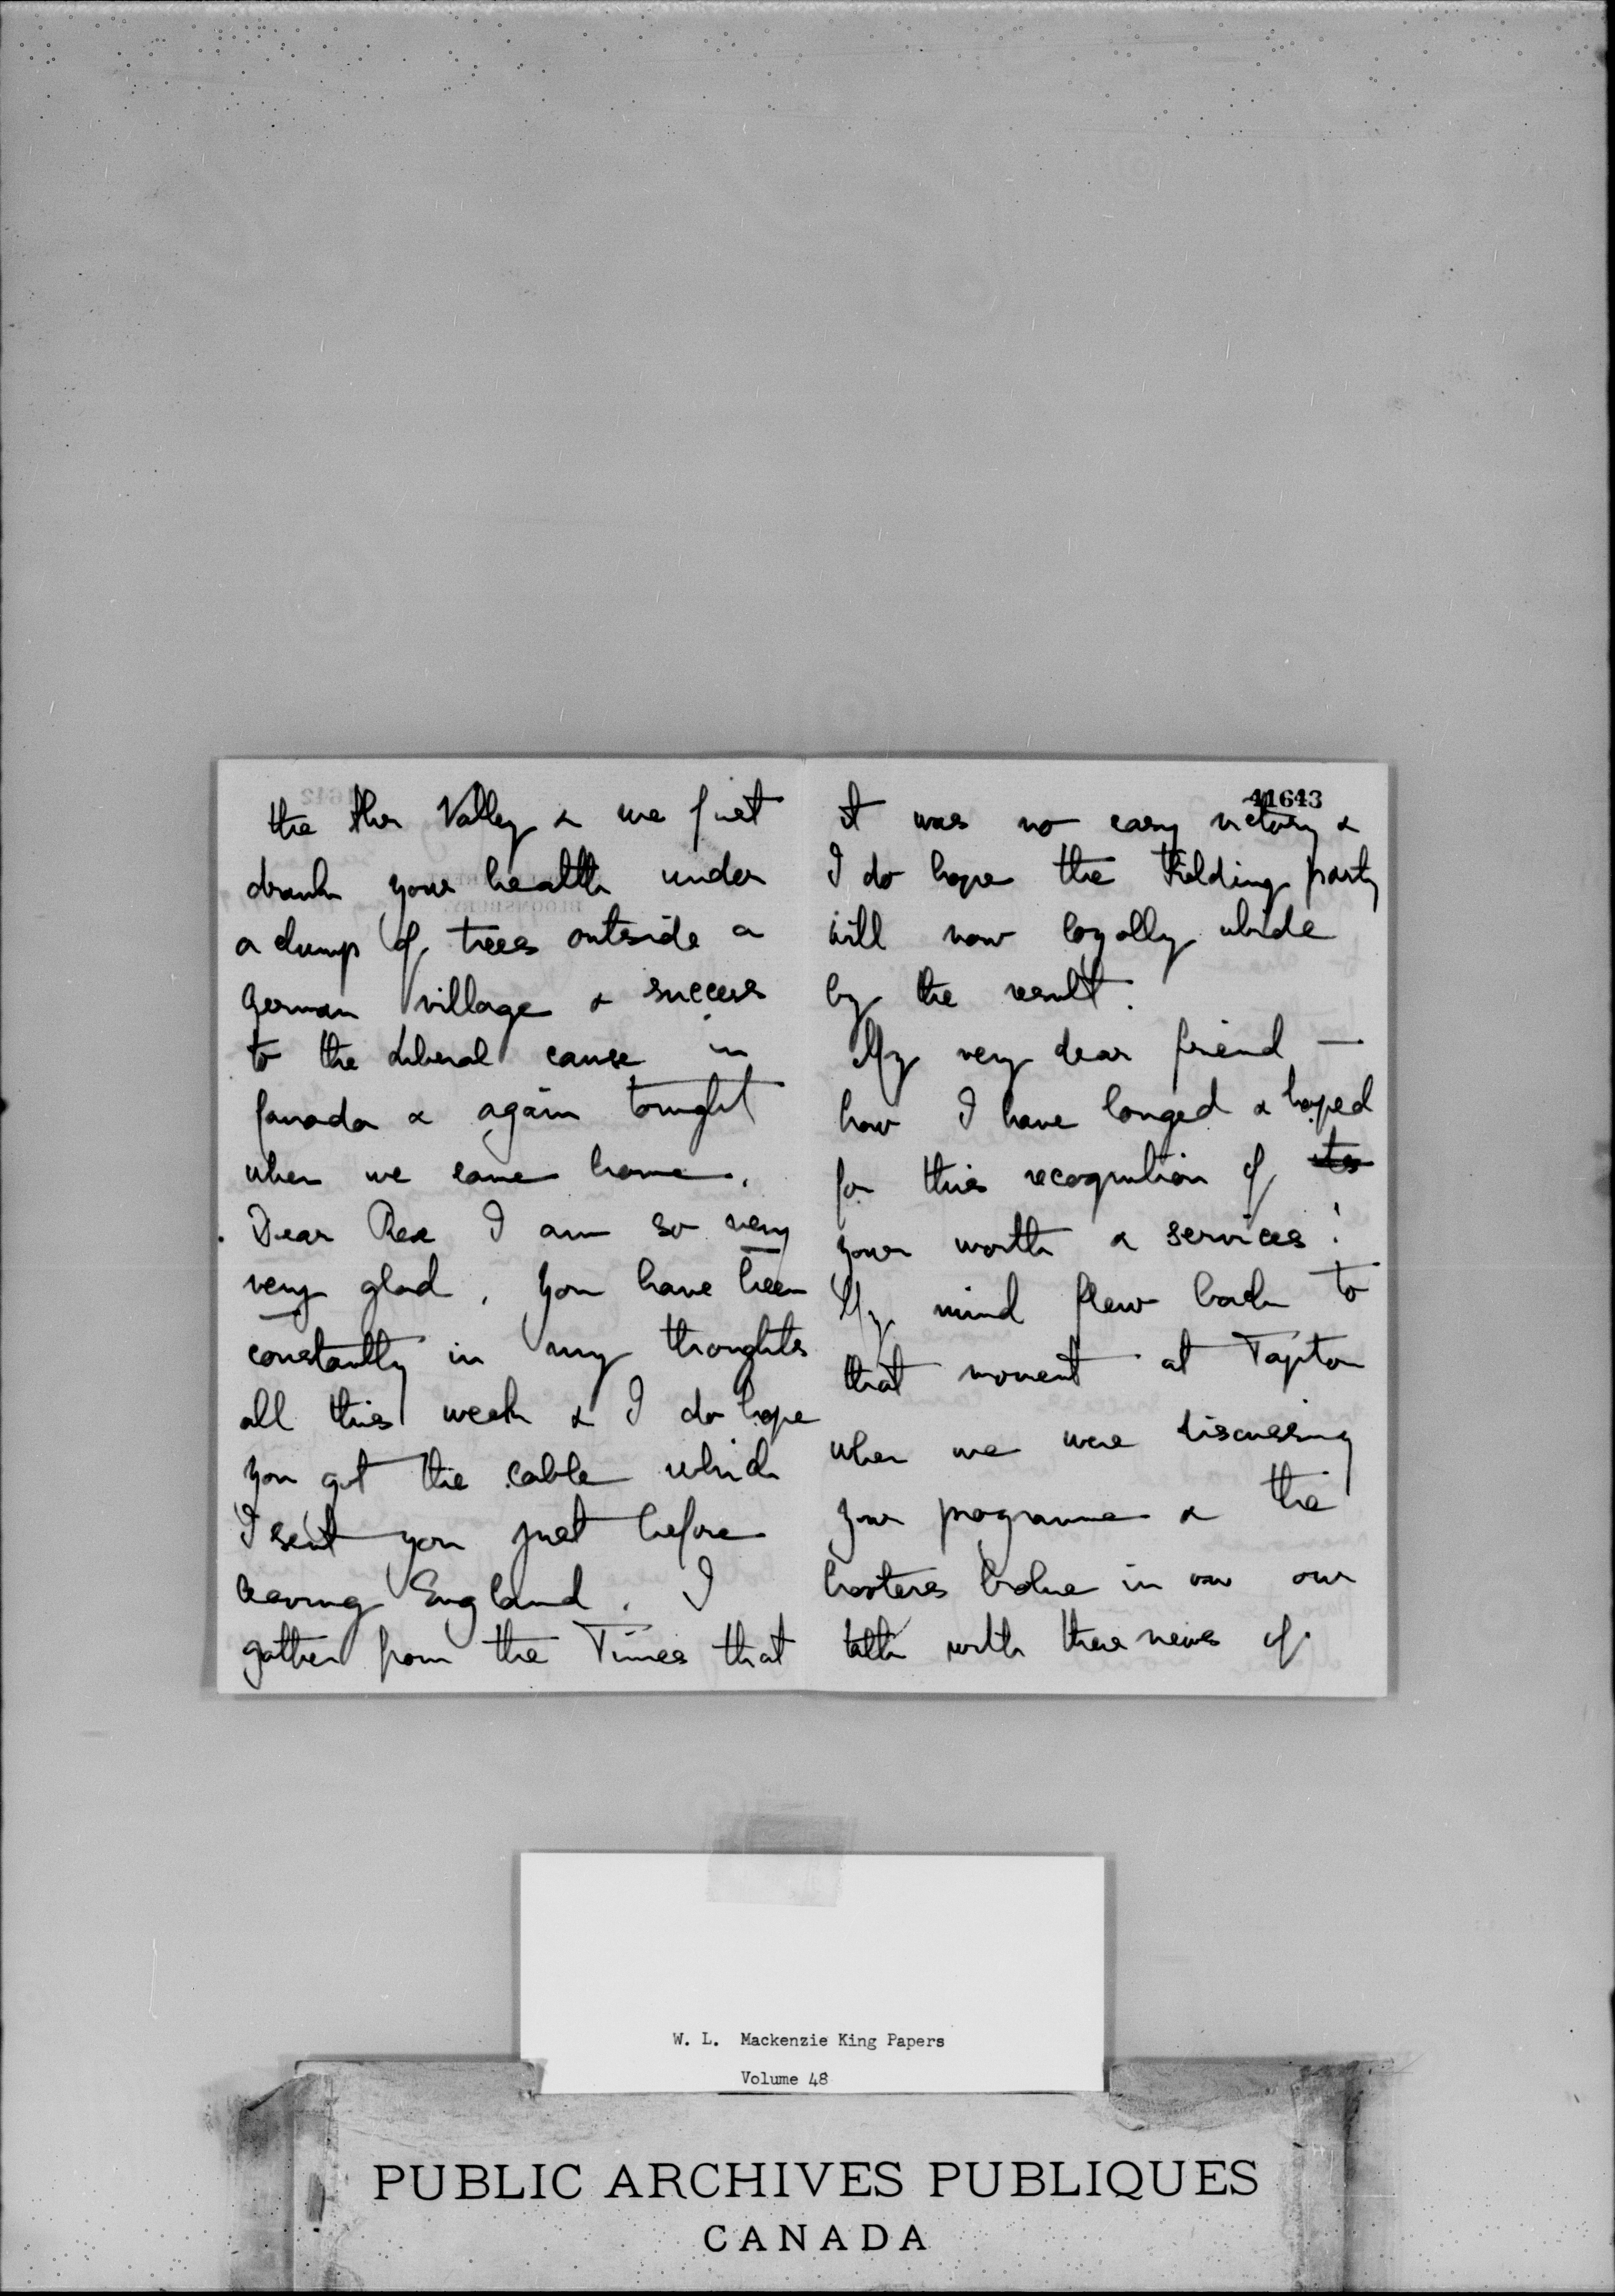 the Ahr Valley & we first
drank your health under
a clump of trees outside a
German village & success
to the Liberal cause in
Canada & again tonight
when we came home.
Dear Rex I am so very
very glad. You have been
constantly in my thoughts
all this week & I do hope
you got the cable which
I sent you just before
leaving England. I
gather from the Times that
41643
it was no easy victory &
I do hope the Fielding party
will now loyally abide
by the result.
My very dear friend —
how I have longed & hoped
for this recognition of
your worth & services!
My mind flew back to
that moment at Tapton
when we were discussing
your programme & the
broke in our
talk with the news of
W. L. Mackenzie King Papers
Volume 48
PUBLIC ARCHIVES PUBLIQUES
CANADA